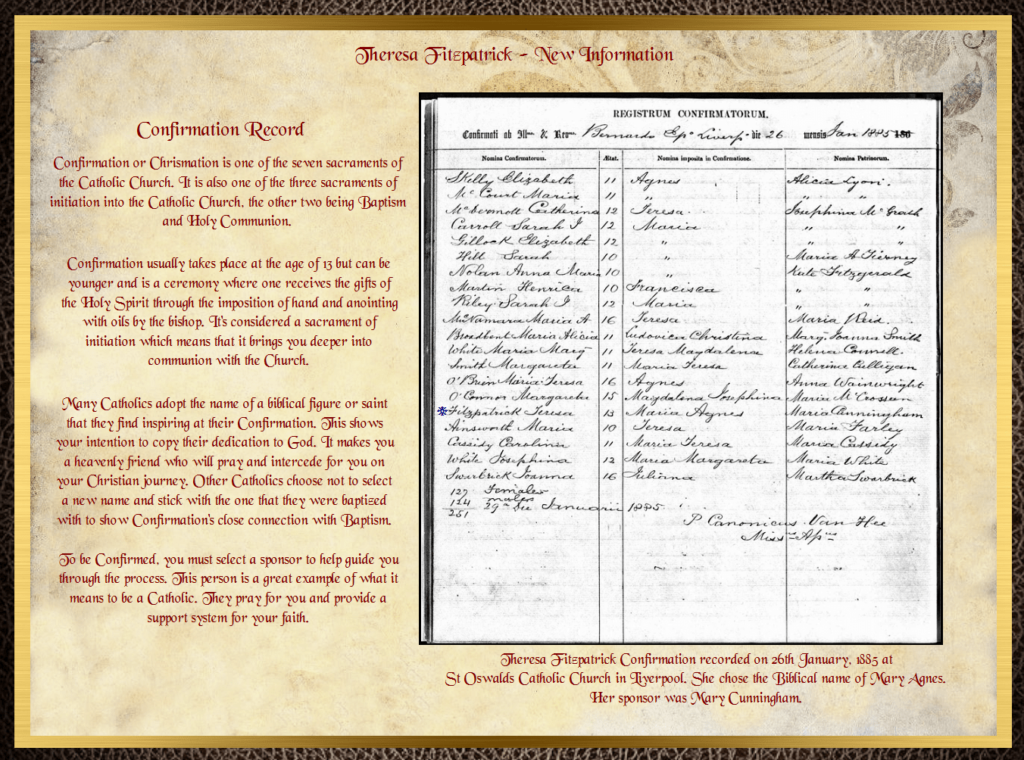 Theresa Fitzpatrick - New Information
Confirmation Record
Confirmation or Chrismation is one of the seven sacraments of
the Catholic Church. It is also one of the three sacraments of
initiation into the Catholic Church, the other two being Baptism
and Holy Communion.
Confirmation usually takes place at the age of 13 but can be
younger and is a ceremony where one receives the gifts of
the Holy Spirit through the imposition of hand and anointing
with oils by the bishop. It's considered a sacrament of
initiation which means that it brings you deeper into
communion with the Church.
Many Catholics adopt the name of a biblical figure or saint
that they find inspiring at their Confirmation. This shows
your intention to copy their dedication to God. It makes you
a heavenly friend who will pray and intercede for you on
your Christian journey. Other Catholics choose not to select
a new name and stick with the one that they were baptized
with to show Confirmation's close connection with Baptism.
To be Confirmed, you must select a sponsor to help guide you
through the process. This person is a great example of what it
means to be a Catholic. They pray for you and provide a
support system for your faith.
REGISTRUM CONFIRMATORUM.
Confirmati ab Illmo & Revmo Bernardo Epo Liverp die 26 mensis Jan 1885 186
Nomina Confirmatorum. Ætat. Nomina imposita in Confirmatione. Nomina Patrinorum.
Skelly Elizabeth 11 Agnes Alicia Lyon.
McCourt Maria 11 " " "
McDermott Catherina 12 Teresa. Josephina McGrath
Carroll Sarah J 12 Maria " "
Gillock Elizabeth 12 " " "
Hill Sarah 10 " Maria A Tierney
Nolan Anna Maria 10 " Kate Fitzgerald
Martin Henrica 10 Francisca " "
Riley Sarah J 12 Maria " "
McNamara Maria A 16 Teresa Maria Reid
Broadbent Maria Alicia 11 Ludovica Christina Mary Joanna Smith
White Maria Marg 11 Teresa Magdalena Helena Connell
Smith Margareta 11 Maria Teresa Catherina Culligan
O'Brien Maria Teresa 16 Agnes Anna Wainwright
O'Connor Margareta 15 Magdalena Josephina Maria McCrossan
*Fitzpatrick Teresa 13 Maria Agnes Maria Cunningham
Ainsworth Maria 10 Teresa Maria Farley
Cassidy Carolina 11 Maria Teresa Maria Cassidy
White Josephina 12 Maria Margareta Maria White
Swarbrick Joanna 16 Juliana Martha Swarbrick
127 Females
124 males
251 29a die Januarii 1885
P Canonicus Van Hee
Miss Ap
Theresa Fitzpatrick Confirmation recorded on 26th January, 1885 at
St Oswalds Catholic Church in Liverpool. She chose the Biblical name of Mary Agnes.
Her sponsor was Mary Cunningham.